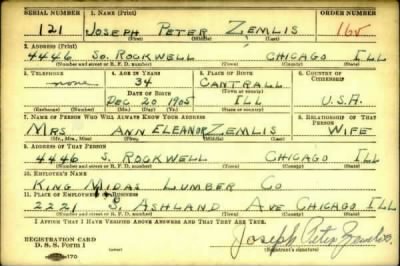 SERIAL NUMBER 1. NAME (Print) ORDER NUMBER
121 JOSEPH PETER ZEMLIS 165
(First) (Middle) (Last)
2. ADDRESS (Print)
4446 SO. ROCKWELL CHICAGO ILL
(Number and street or R. F. D. number) (Town) (County) (State)
3. TELEPHONE 4. AGE IN YEARS 5. PLACE OF BIRTH 6. COUNTRY OF CITIZENSHIP
none 34 CANTRALL
DATE OF BIRTH (Town or county)
DEC 20 1905 ILL U.S.A.
(Exchange) (Number) (Mo.) (Day) (Yr.) (State or country)
7. NAME OF PERSON WHO WILL ALWAYS KNOW YOUR ADDRESS 8. RELATIONSHIP OF THAT PERSON
MRS ANN ELEANOR ZEMLIS WIFE
(Mr., Mrs., Miss) (First) (Middle) (Last)
9. ADDRESS OF THAT PERSON
4446 S. ROCKWELL CHICAGO ILL
(Number and street or R. F. D. number) (Town) (County) (State)
10. EMPLOYER'S NAME
KING MIDAS LUMBER CO
11. PLACE OF EMPLOYMENT OR BUSINESS
2221 S. ASHLAND AVE CHICAGO ILL
(Number and street or R. F. D. number) (Town) (County) (State)
I AFFIRM THAT I HAVE VERIFIED ABOVE ANSWERS AND THAT THEY ARE TRUE.
REGISTRATION CARD
D. S. S. Form 1
Joseph Peter Zemlis